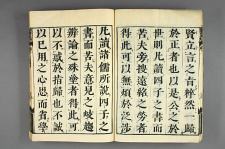 賢立言之旨粹然一歸
於正者也以是公之於
世則凡讀四子之書而
苦夫旁搜遠紹之勞者
得此可以無煩於泛涉
凡讀諸儒所說四子之
書而苦夫意見之歧趨
辯論之殊塗者得此可
以不惑於指歸也不誠
以已用之心思而省學